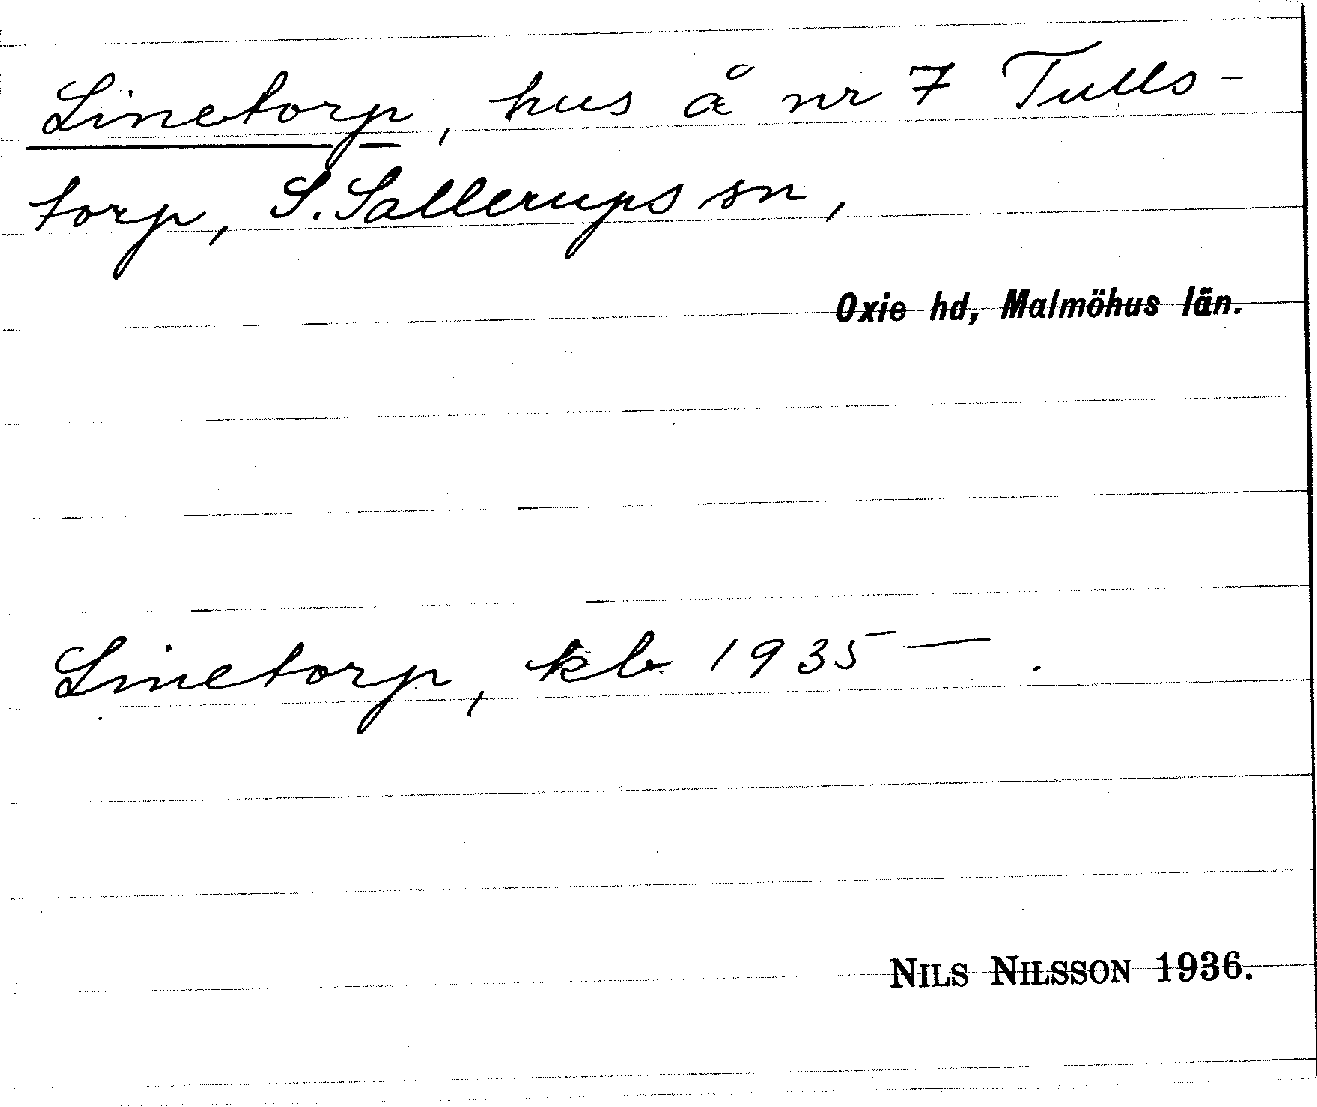 Linetorp, hus å nr 7 Tulls-
torp, S. Sallerups sn,
Oxie hd, Malmöhus län.
Linetorp, kb 1935 — .
NILS NILSSON 1936.